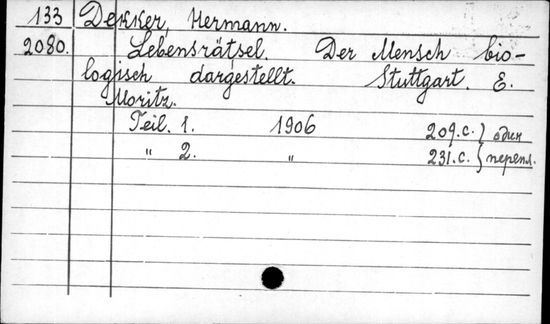 133 Dekker, Hermann.
2080. Lebensrätsel. Der Mensch bio-
logisch dargestellt. Stuttgart. E.
Moritz.
Teil. 1. 1906 209.с. } один
" 2. " 231.с. } перепл.